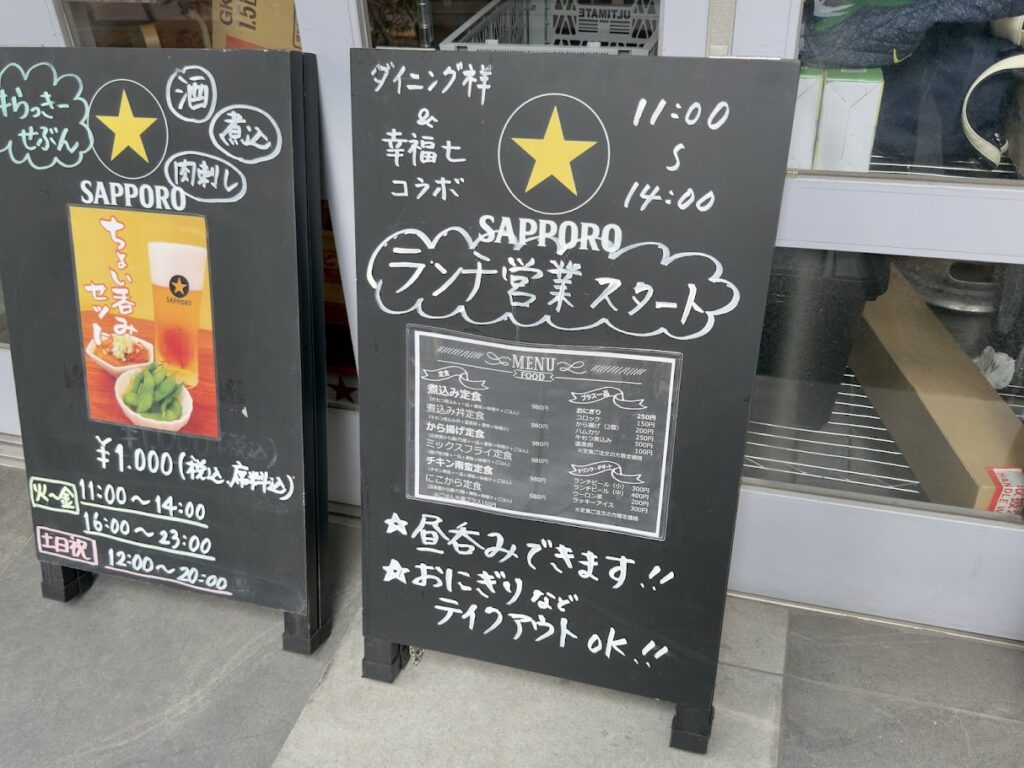 らっきー
せぶん
酒
煮込
肉刺し
SAPPORO
ちょい呑み
セット
SAPPORO
¥1.000(税込、席料込)
火〜金 11:00〜14:00
16:00〜23:00
土日祝 12:00〜20:00
ULTIMATE
ダイニング祥
&
幸福七
コラボ
11:00
S
14:00
SAPPORO
ランチ営業スタート
MENU
FOOD
定食
煮込み定食 980円
煮込み丼定食 980円
から揚げ定食 980円
ミックスフライ定食 980円
チキン南蛮定食 980円
にこから定食 680円
プラス一品
おにぎり 250円
コロッケ 150円
から揚げ(2個) 200円
ハムカツ 250円
牛もつ煮込み 500円
温泉卵 100円
※定食ご注文の方限定価格
ドリンク・デザート
ランチビール(小) 300円
ランチビール(中) 400円
ウーロン茶 200円
ラッキーアイス 300円
※定食ご注文の方限定価格
★昼呑みできます!!
★おにぎりなど
テイクアウトOK!!